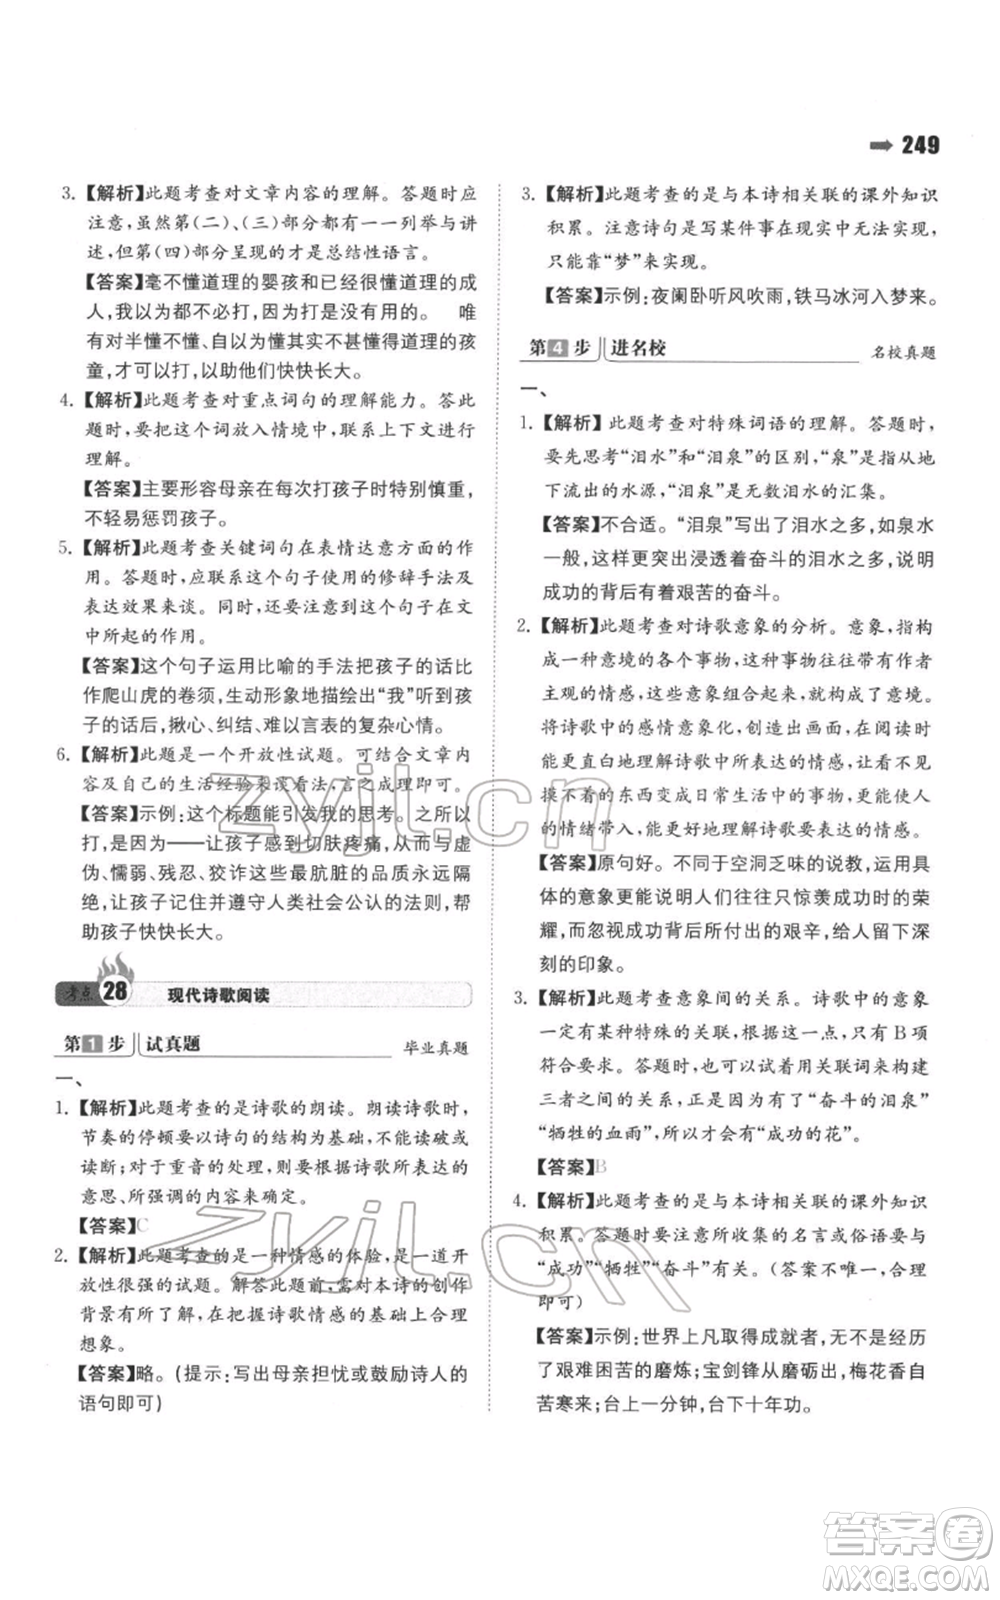 249
3. 【解析】此题考查对文章内容的理解。答题时应
注意,虽然第(二)、(三)部分都有一一列举与讲
述,但第(四)部分呈现的才是总结性语言。
【答案】毫不懂道理的婴孩和已经很懂道理的成
人,我以为都不必打,因为打是没有用的。 唯
有对半懂不懂、其实懂得而不懂得道理的孩
童,才可以打,能让他们快快长大。
4. 【解析】此题考查对重点词句的理解能力。答此
题时,要把这个词放入情境中,联系上下文进行
理解。
【答案】主要形容母亲在每次打孩子时特别慎重,
不轻易惩罚孩子。
5. 【解析】此题考查关键词句在表情达意方面的作
用。答题时,应联系这个句子使用的修辞手法及
表达效果来谈。同时,还要注意这个句子在文
中所起的作用。
【答案】这个句子运用比喻的手法把孩子的话比
作爬山虎的卷须,生动形象地描绘出“我”听到孩
子的话后,揪心、纠结、难以言表的复杂心情。
6. 【解析】此题是一个开放性试题。可结合文章内
容及自己的生活经验来谈看法,言之成理即可。
【答案】示例:这个标题能引发我的思考。之所以
打,是因为——让孩子感到切肤疼痛,从而与虚
伪、懦弱、残忍、狡诈这些最肮脏的品质永远隔
绝,让孩子记住并遵守人类社会公认的法则,帮
助孩子快快长大。
考点 28 现代诗歌阅读
第1步 试真题 毕业真题
一、
1. 【解析】此题考查的是诗歌的朗读。朗读诗歌时,
节奏的停顿要以诗句的结构为基础,不能读破或
读断;对于重音的处理,则要根据诗歌所表达的
意思、所强调的内容来确定。
【答案】C
2. 【解析】此题考查的是一种情感的体验,是一道开
放性很强的试题。解答此题前,需对本诗的创作
背景有所了解,在把握诗歌情感的基础上合理
想象。
【答案】略。(提示:写出母亲担忧或鼓励诗人的
语句即可)
3. 【解析】此题考查的是与本诗相关联的课外知识
积累。注意诗句是写某件事在现实中无法实现,
只能靠“梦”来实现。
【答案】示例:夜阑卧听风吹雨,铁马冰河入梦来。
第4步 进名校 名校真题
一、
1. 【解析】此题考查对特殊词语的理解。答题时,
要先思考“泪水”和“泪泉”的区别,“泉”是从地
下流出的水源,“泪泉”是无数泪水的汇集。
【答案】不合适。“泪泉”写出了泪水之多,如泉水
一般,这样更突出浸透着奋斗的泪水之多,说明
成功的背后有着艰苦的奋斗。
2. 【解析】此题考查对诗歌意象的分析。意象,指构
成一种意境的各个事物,这种事物往往带有作者
主观的情感,这些意象组合起来,就成了意境。
将诗歌中的感情意象化,创造出画面,在阅读时
能更直白地理解诗歌中所表达的情感,让看不见
摸不着的东西变成日常生活中的事物,更能将人
的情绪带入,能更好地理解诗歌要表达的情感。
【答案】原句好。不同于空洞乏味的说教,运用花
的意象更能写出人们往往只惊羡成功时的荣
耀,而忽视成功背后所付出的艰辛,给人留下深
刻的印象。
3. 【解析】此题考查意象间的关系。诗歌中的意象
一定有某种特殊的关联,按照这一点,只有B项
符合要求。答题时,可以用关联词来构建这
三者之间的关系,正是因为有了“奋斗的泪泉”
“牺牲的血雨”,所以才有“成功的花”。
【答案】B
4. 【解析】此题考查的是与本诗相关联的课外知识
积累。答题时要注意所收集的名言或俗语要与
“成功”“牺牲”“奋斗”有关。(答案不唯一,合理
即可)
【答案】示例:世界上凡取得成就者,无不是经历
了艰难困苦的磨炼;宝剑锋从磨砺出,梅花香自
苦寒来;台上一分钟,台下十年功。
zyjl.cn
zyjl.cn
答案圈
MXQE.COM